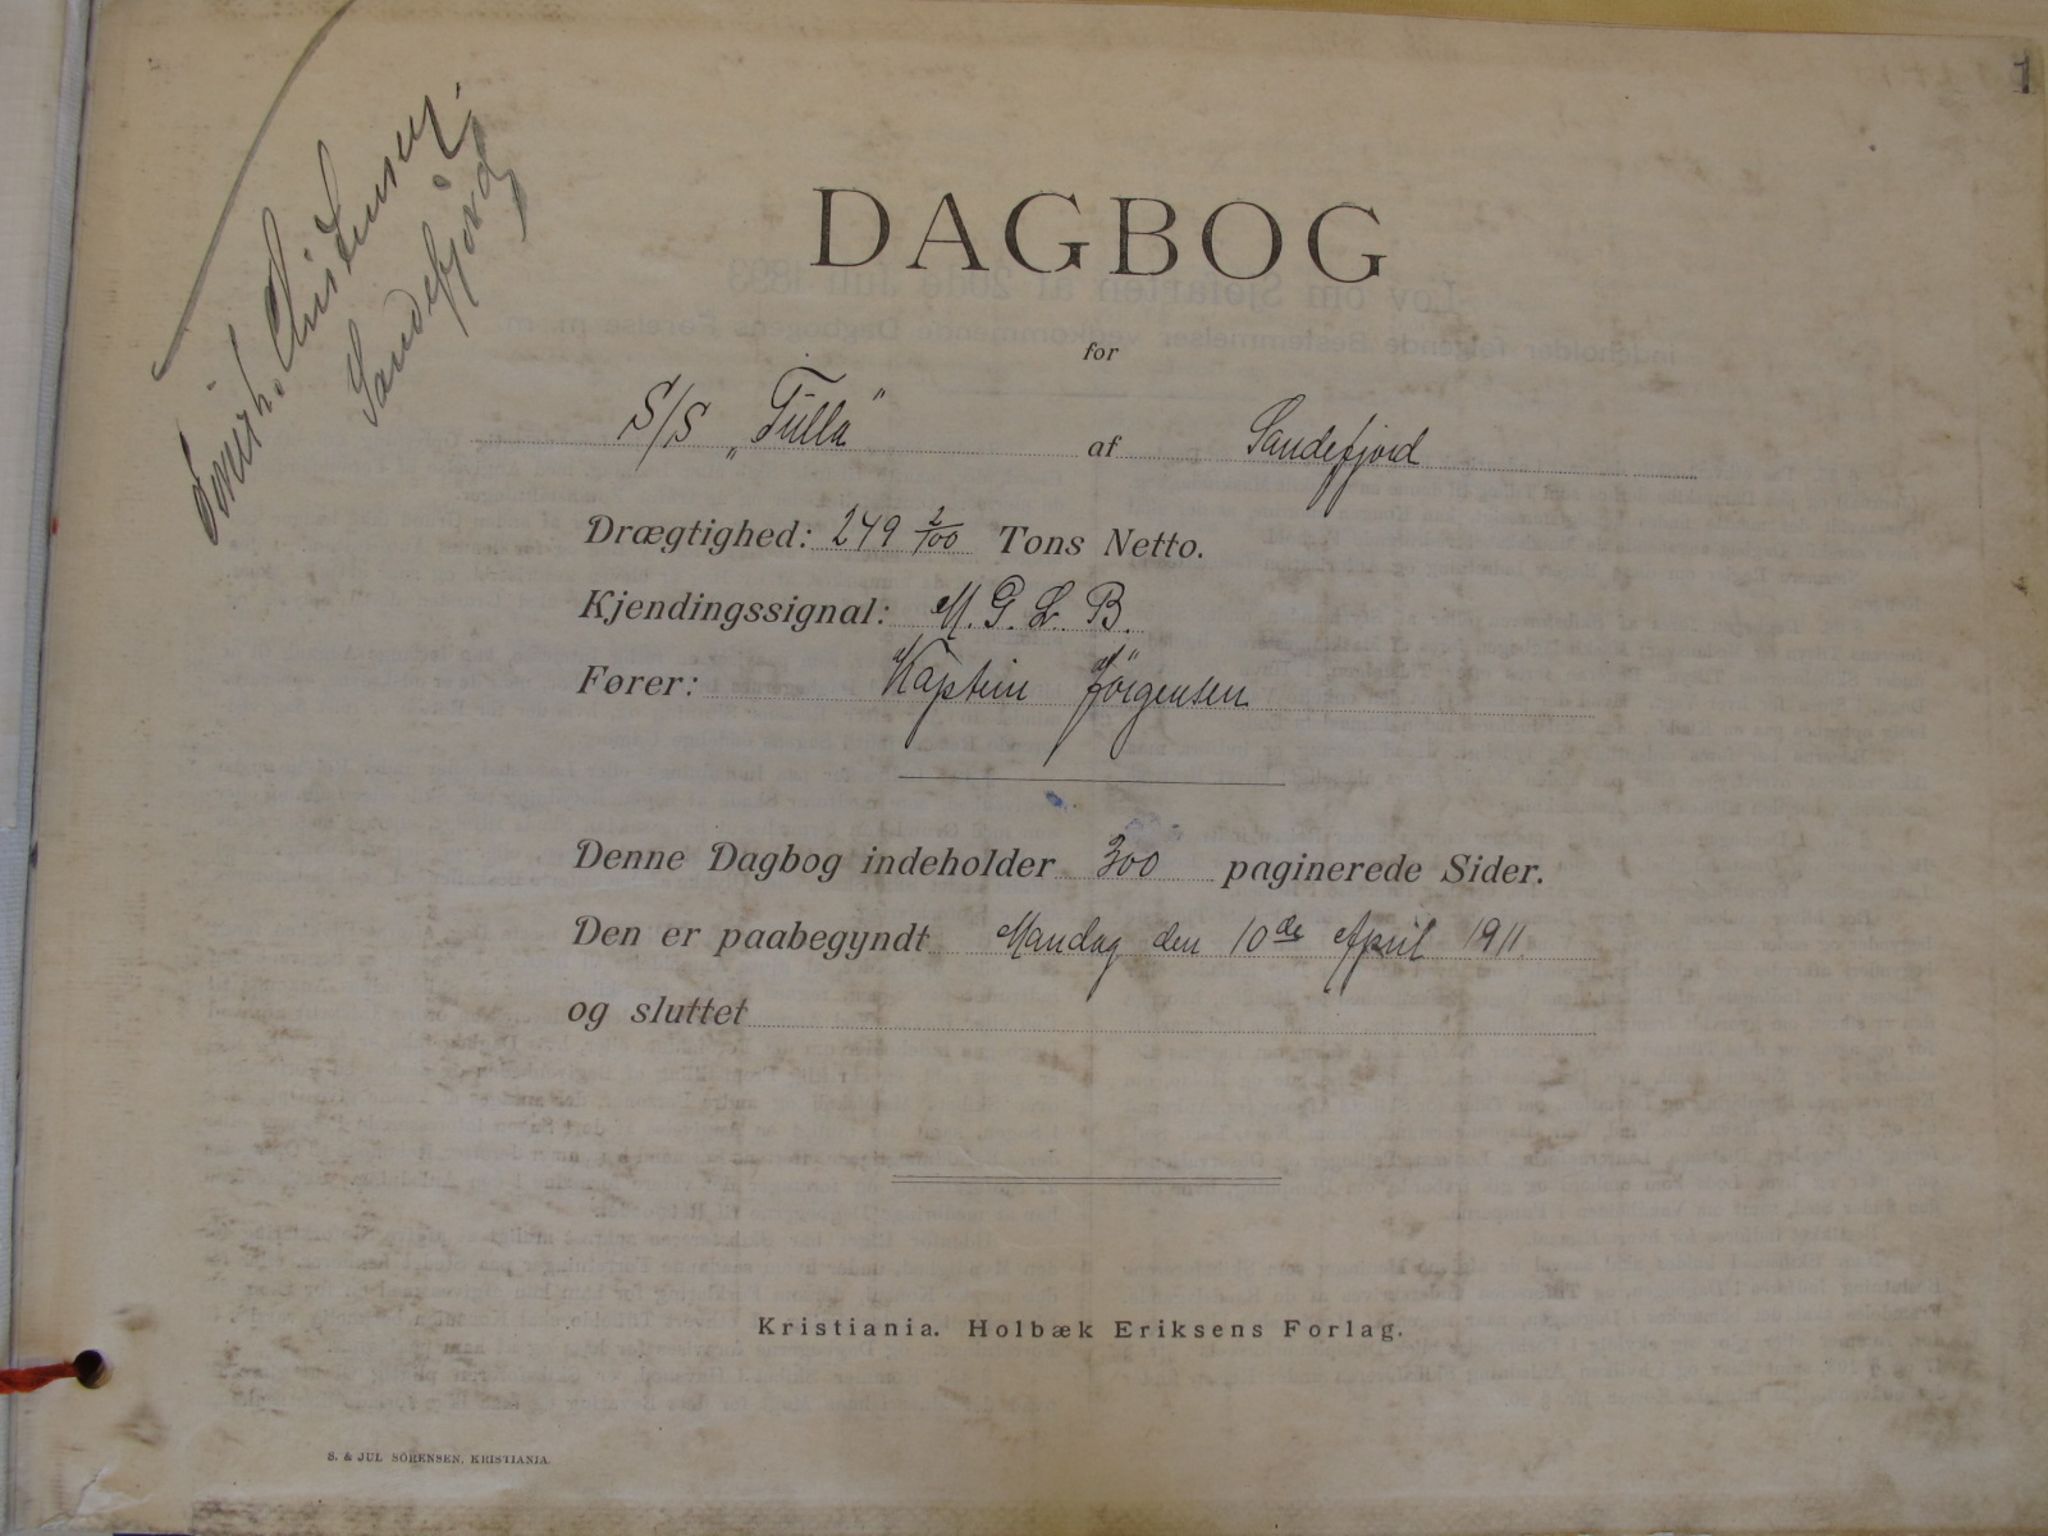 1
Christensen,
Sandefjord
DAGBOG
for
S/S „Tulla" af Sandefjord
Drægtighed: 249 2/100 Tons Netto.
Kjendingssignal: M. G. L. B.
Fører: Kaptein Jörgensen
Denne Dagbog indeholder 300 paginerede Sider.
Den er paabegyndt Mandag den 10de April 1911.
og sluttet
Kristiania. Holbæk Eriksens Forlag.
S. & JUL SÖRENSEN, KRISTIANIA.